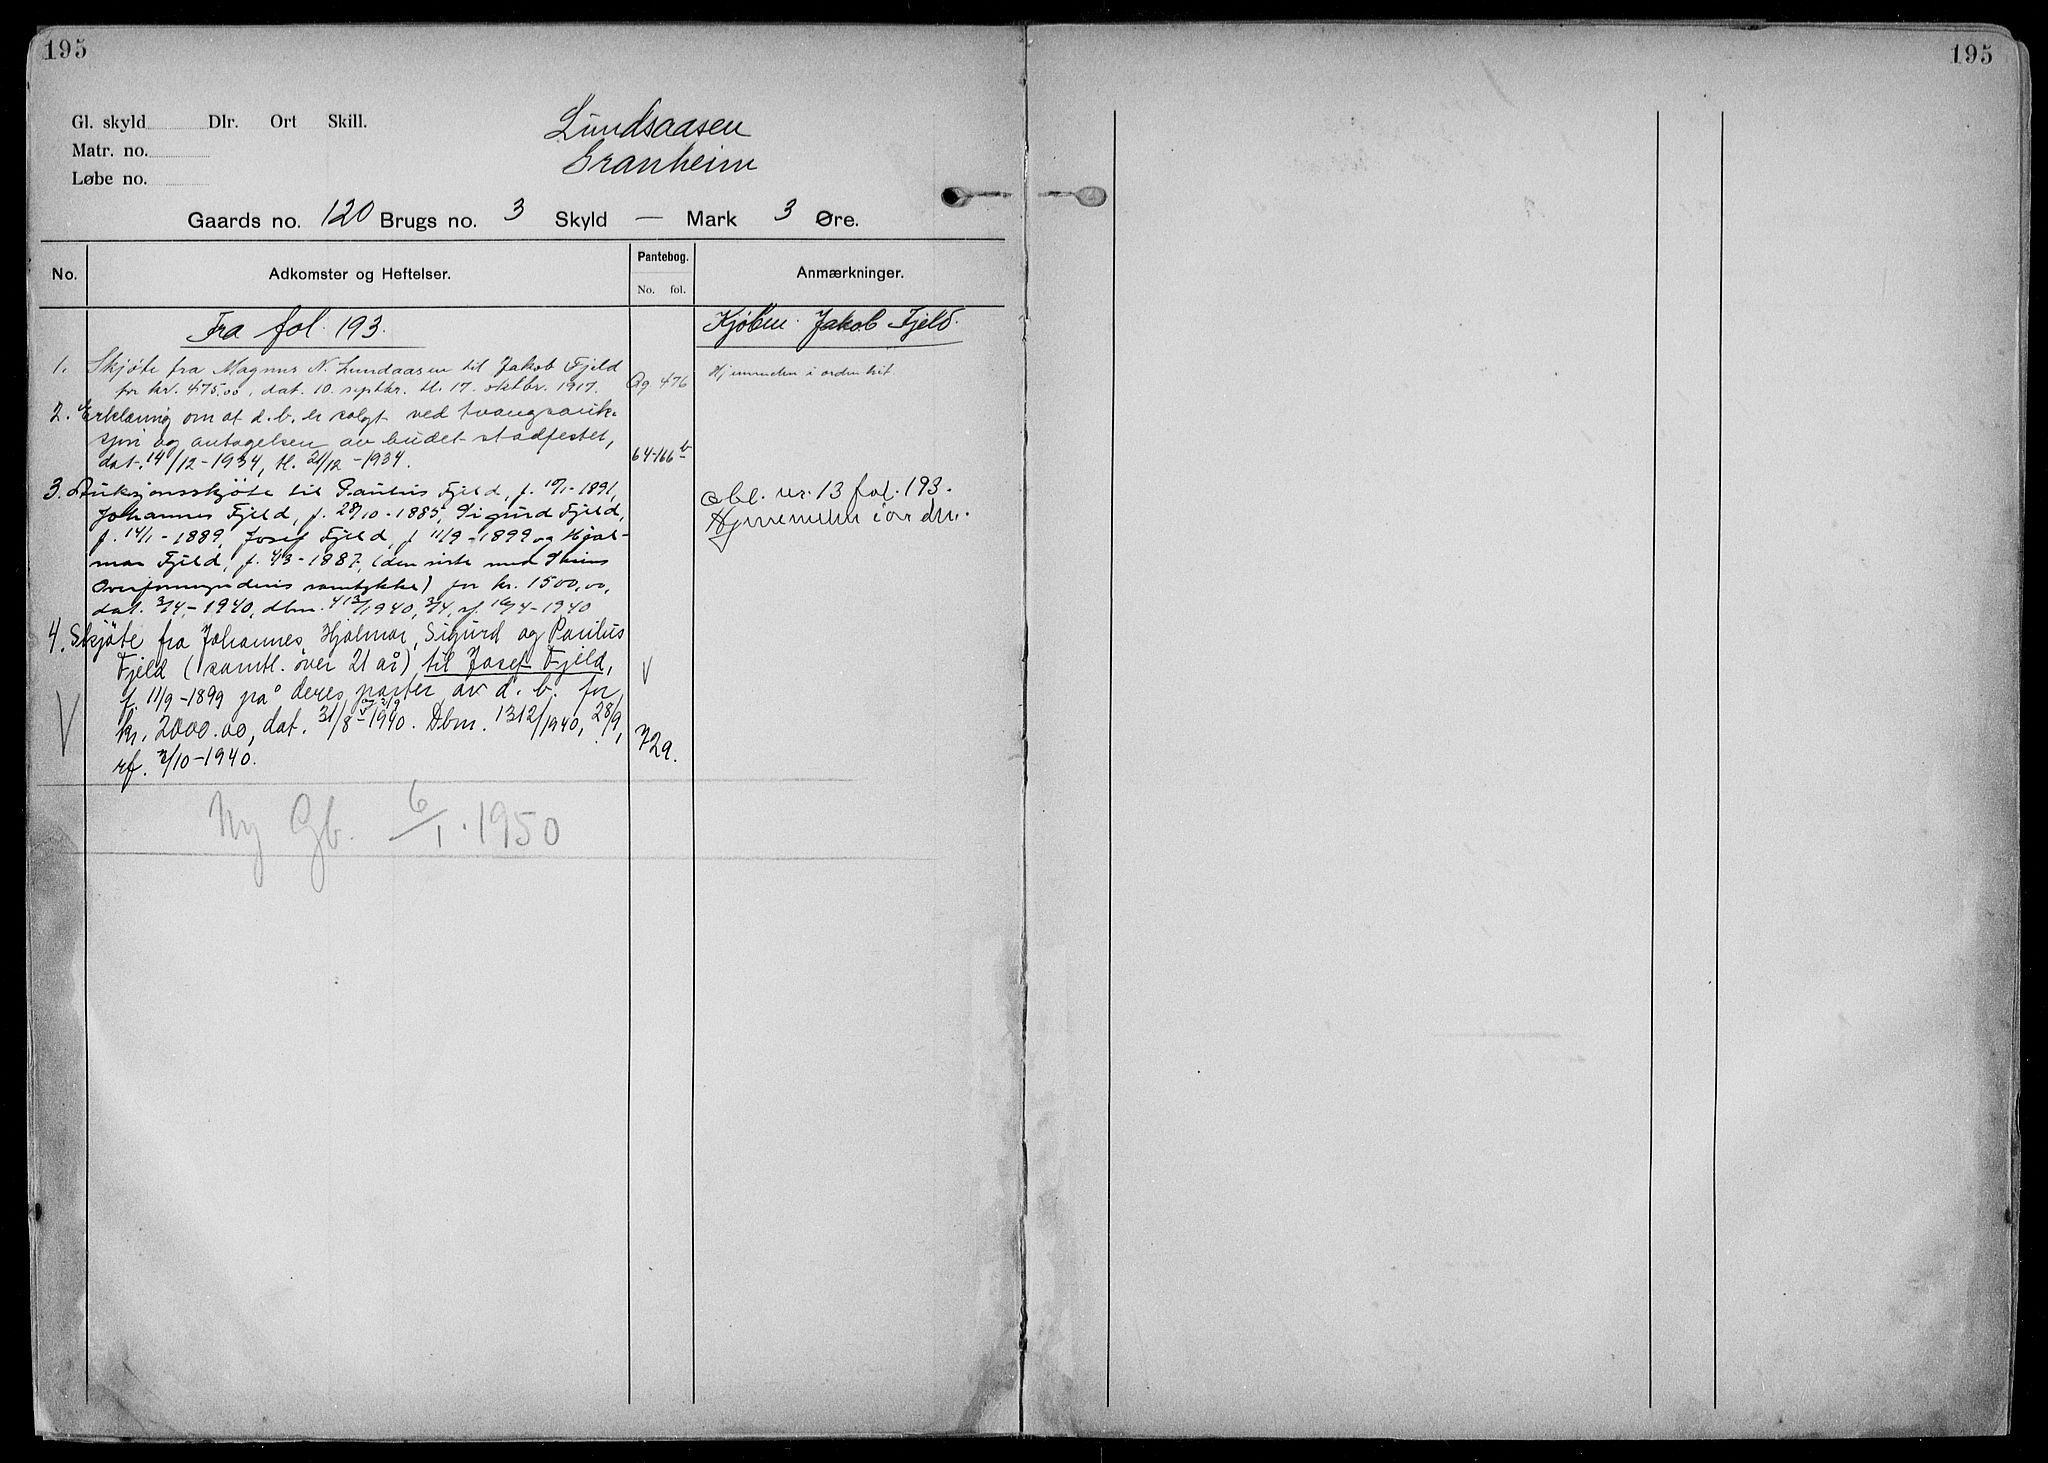 195
195
Gl. skyld Dlr. Ort Skill.
Matr. no.
Løbe no.
Lundsaasen
Granheim
Gaards no. 120 Brugs no. 3 Skyld — Mark 3 Øre.
No.
Adkomster og Heftelser.
Pantebog.
No. fol.
Anmærkninger.
Fra fol. 193.
Kjöben. Jakob Fjeld.
1. Skjöte fra Magnus N. Lundaasen til Jakob Fjeld
for kr. 475.00, dat. 10. septbr. tl. 17. oktbr. 1917.
476
Hjemmelen i orden
2. Erklæring om at d. b. er solgt ved tvangsauk-
sjon og antagelsen av budet stadfestet,
dat. 14/12-1934, tl. 21/12-1934.
64-166 b
3. Auksjonsskjöte til Paulus Fjeld, f. 10/1-1891,
Johannes Fjeld, f. 28/10-1885, Sigurd Fjeld,
f. 14/1-1889, Josef Fjeld, f. 11/9-1899 og Hjal-
mar Fjeld, f. 4/3-1887, (den siste med
Overformynderis samtykke) for kr. 1500,00,
dat. 3/4-1940, dbnr. 413/1940, 3/4, rf. 16/4-1940
obl. nr. 13 fol. 193.
Hjemmelen i orden.
4. Skjöte fra Johannes, Hjalmar, Sigurd og Paulus
Fjeld (samtl. over 21 år) til Josef Fjeld,
f. 11/9-1899 på deres parter av d. b. for
kr. 2000.00, dat. 31/8 -1940. Dbnr. 1312/1940, 28/9,
rf. 2/10-1940.
V
V
729.
Ny Gb. 6/1. 1950